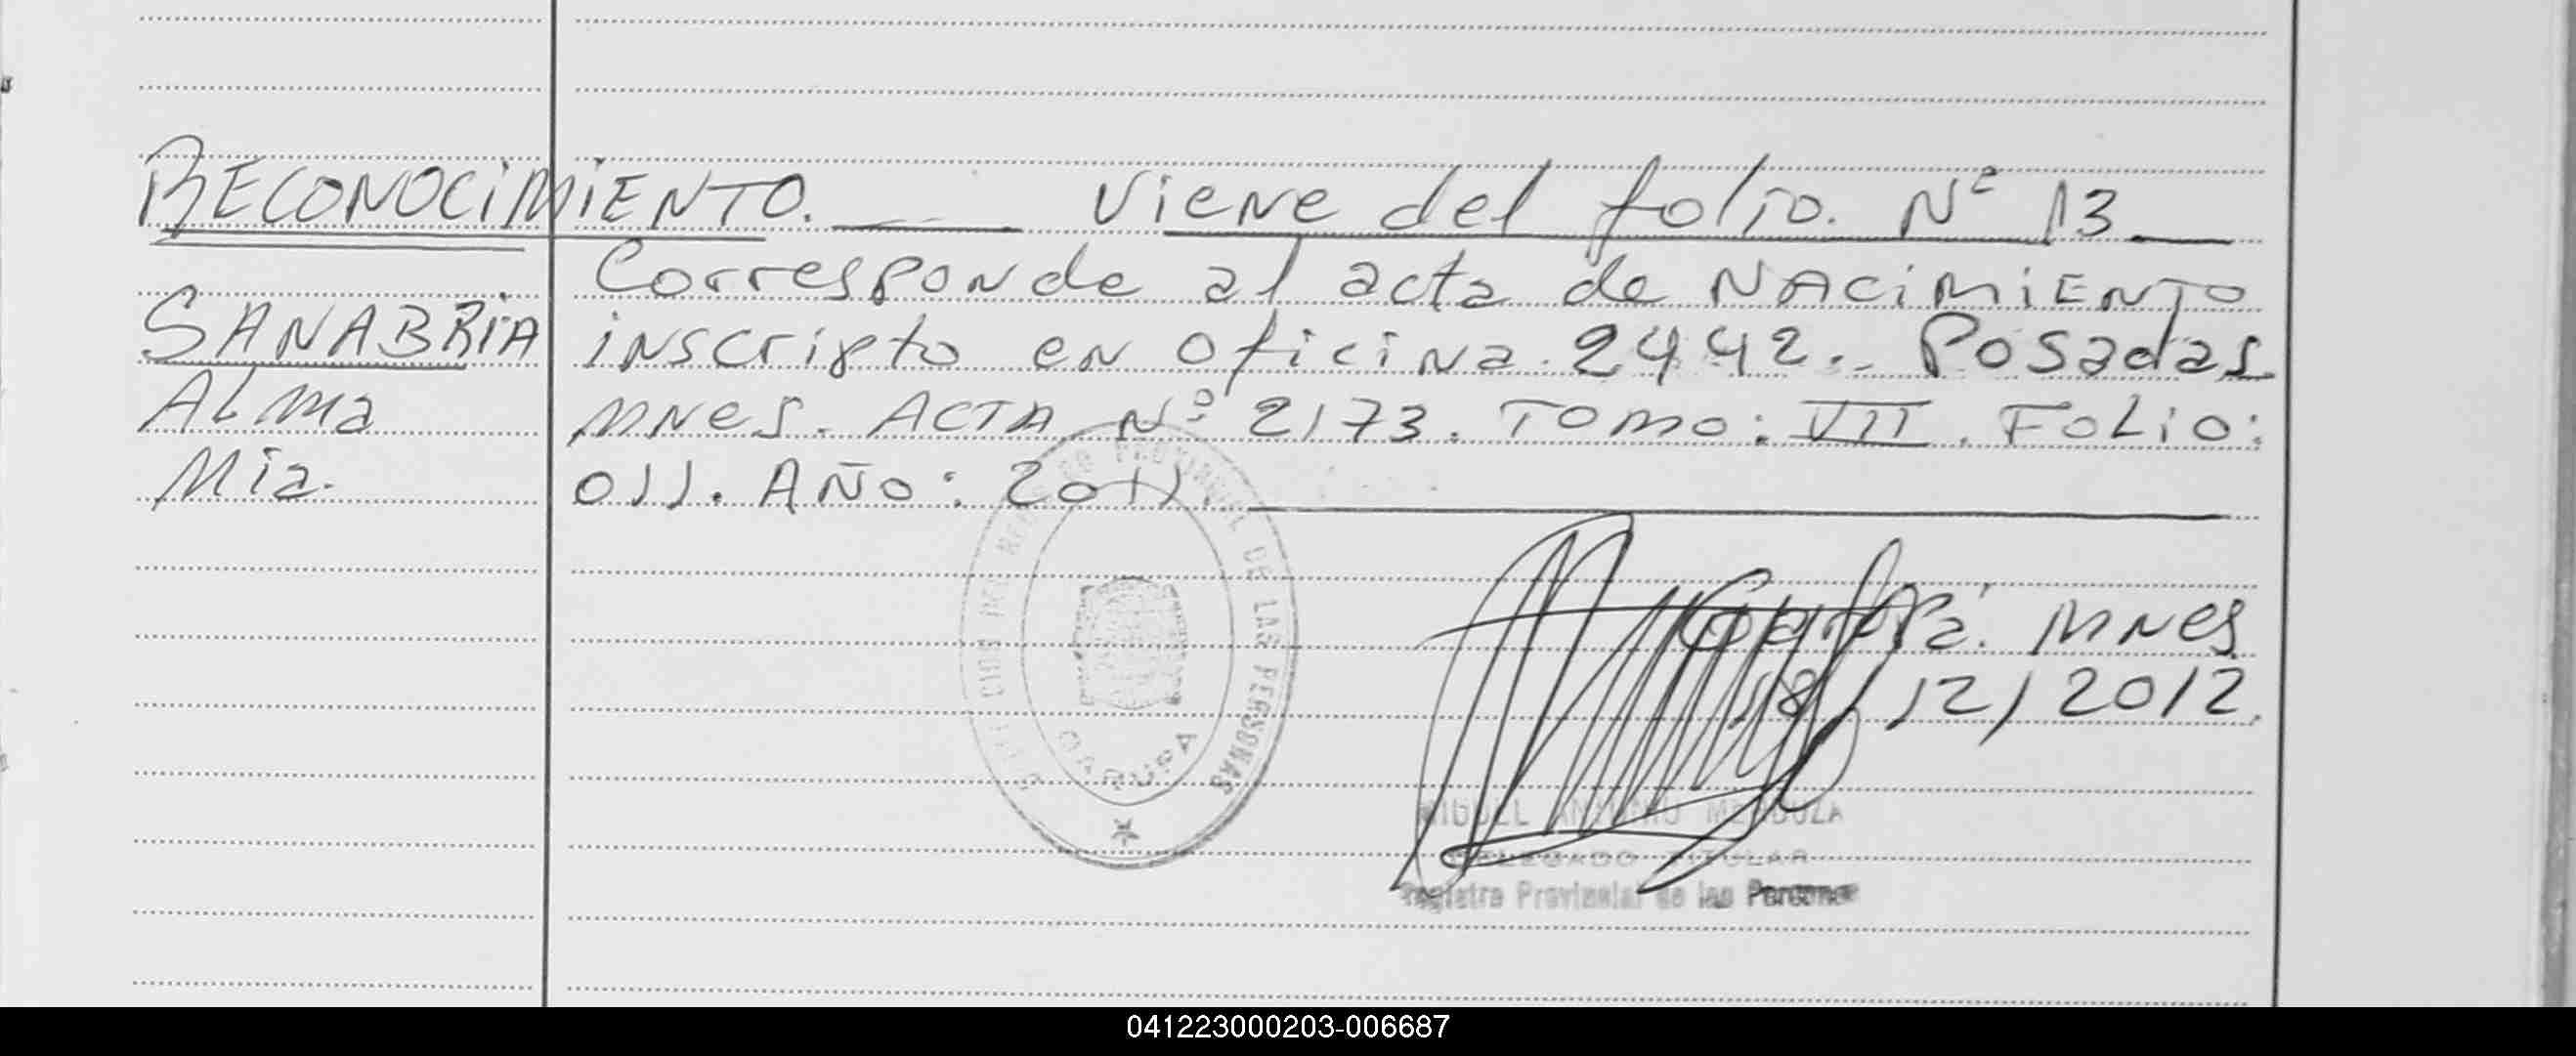 RECONOCIMIENTO. Viene del folio. Nº 13
Corresponde al acta de NACIMIENTO
SANABRIA inscripto en oficina 2442. Posadas
Alma MNES. ACTA Nº 2173. TOMO: VII. FOLIO:
Mia. 011. AÑO: 2011.
Garupá. MNES
18/12/2012.
REGISTRO PROVINCIAL DE LAS PERSONAS
GARUPA
MIGUEL ANTONIO MENDOZA
DELEGADO TITULAR
Registro Provincial de las Personas
041223000203-006687